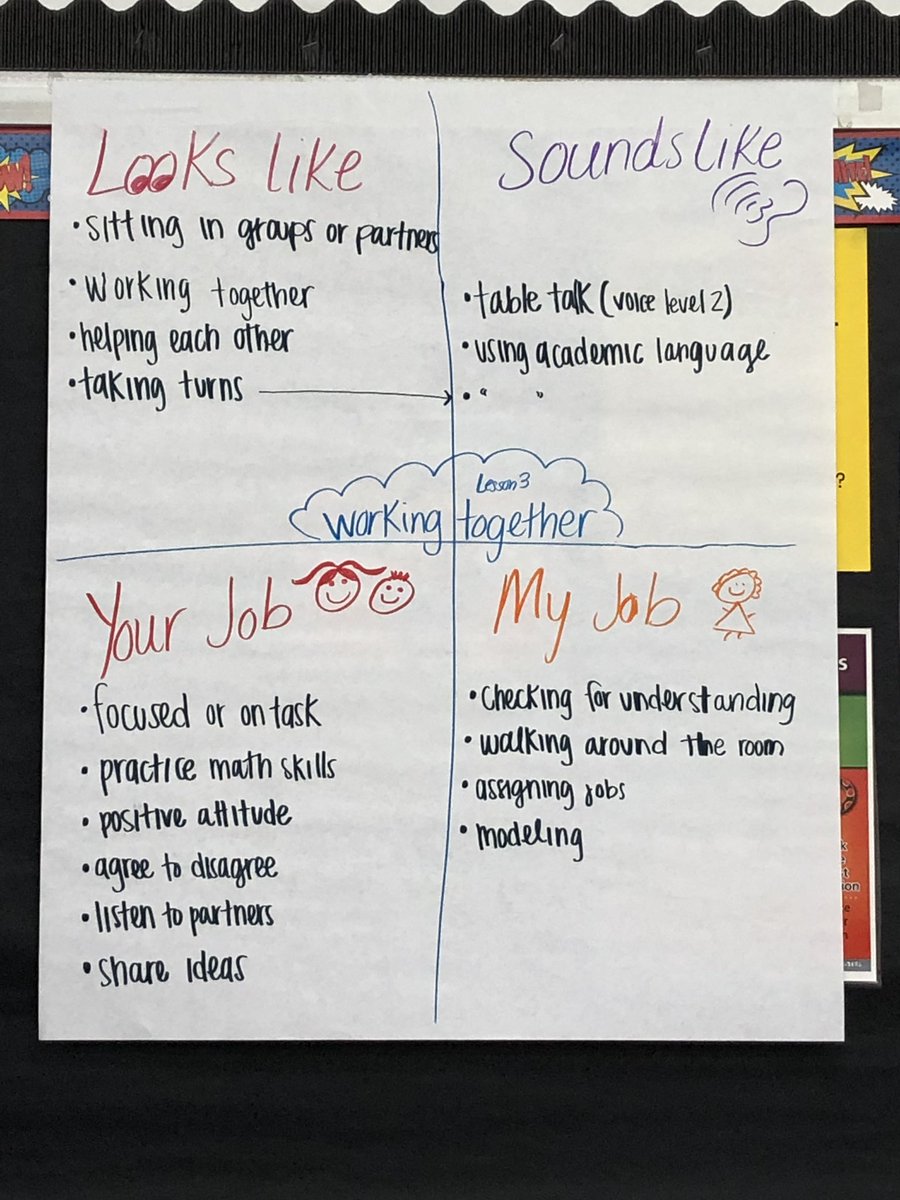 Looks like
• sitting in groups or partners
• working together
• helping each other
• taking turns
Sounds like
• table talk (voice level 2)
• using academic language
• " "
Lesson 3
working together
Your Job
• focused or on task
• practice math skills
• positive attitude
• agree to disagree
• listen to partners
• share ideas
My Job
• checking for understanding
• walking around the room
• assigning jobs
• modeling
?
S
ion